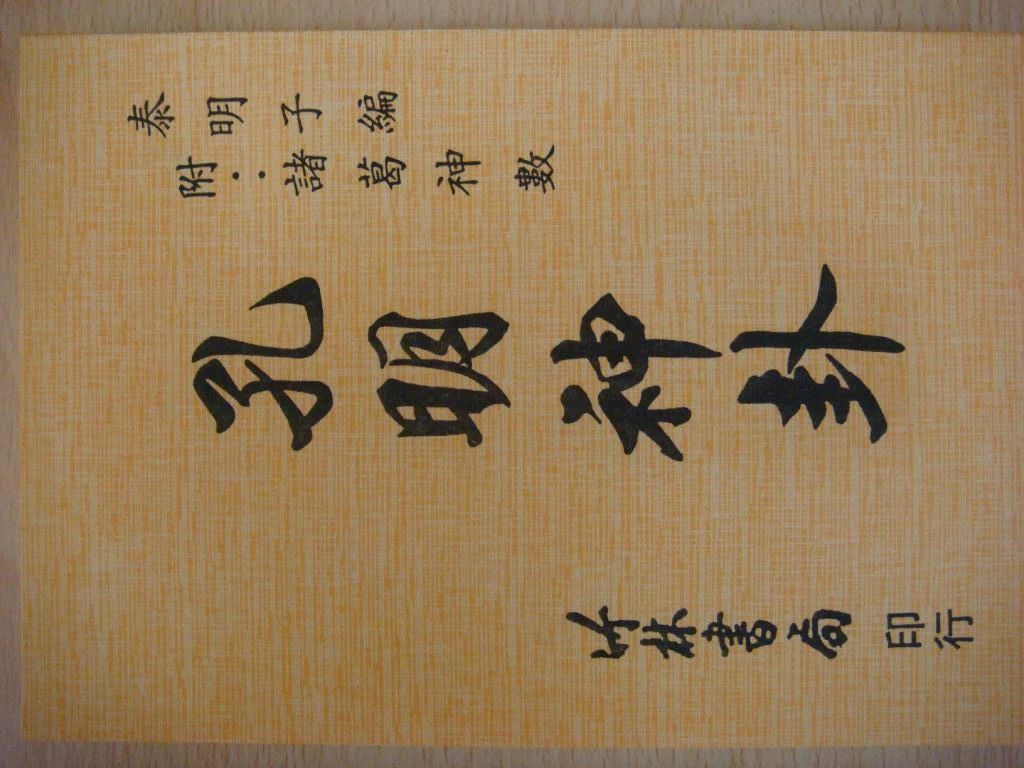 泰明子編
附:諸葛神數
孔明神卦
竹林書局印行